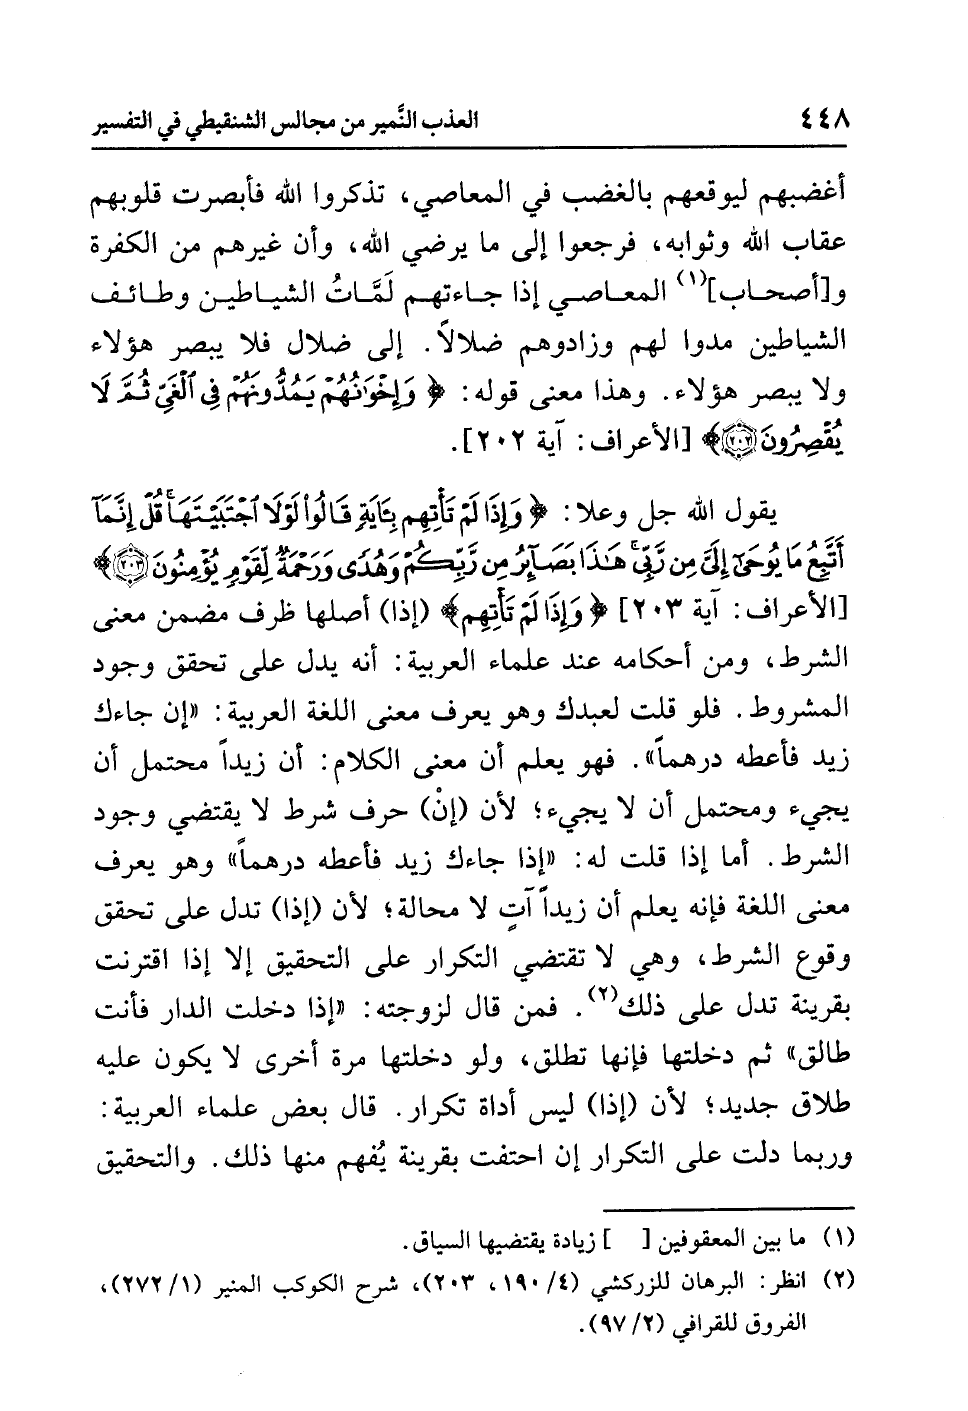 ٤٤٨ العذب النَّمير من مجالس الشنقيطي في التفسير
أغضبهم ليوقعهم بالغضب في المعاصي، تذكروا الله فأبصرت قلوبهم
عقاب الله وثوابه، فرجعوا إلى ما يرضي الله، وأن غيرهم من الكفرة
و[أصحاب](١) المعاصي إذا جاءتهم لَمَّاتُ الشياطين وطائف
الشياطين مدوا لهم وزادوهم ضلالاً. إلى ضلال فلا يبصر هؤلاء
ولا يبصر هؤلاء. وهذا معنى قوله: ﴿وَإِخْوَٰنُهُمْ يَمُدُّونَهُمْ فِى ٱلْغَىِّ ثُمَّ لَا
يُقْصِرُونَ ٢٠٢﴾ [الأعراف: آية ٢٠٢].
يقول الله جل وعلا: ﴿وَإِذَا لَمْ تَأْتِهِم بِـَٔايَةٍ قَالُوا۟ لَوْلَا ٱجْتَبَيْتَهَا ۚ قُلْ إِنَّمَآ
أَتَّبِعُ مَا يُوحَىٰٓ إِلَىَّ مِن رَّبِّى ۚ هَـٰذَا بَصَآئِرُ مِن رَّبِّكُمْ وَهُدًى وَرَحْمَةٌ لِّقَوْمٍ يُؤْمِنُونَ ٢٠٣﴾
[الأعراف: آية ٢٠٣] ﴿وَإِذَا لَمْ تَأْتِهِم﴾ (إذا) أصلها ظرف مضمن معنى
الشرط، ومن أحكامه عند علماء العربية: أنه يدل على تحقق وجود
المشروط. فلو قلت لعبدك وهو يعرف معنى اللغة العربية: «إن جاءك
زيد فأعطه درهماً». فهو يعلم أن معنى الكلام: أن زيداً محتمل أن
يجيء ومحتمل أن لا يجيء؛ لأن (إنْ) حرف شرط لا يقتضي وجود
الشرط. أما إذا قلت له: «إذا جاءك زيد فأعطه درهماً» وهو يعرف
معنى اللغة فإنه يعلم أن زيداً آتٍ لا محالة؛ لأن (إذا) تدل على تحقق
وقوع الشرط، وهي لا تقتضي التكرار على التحقيق إلا إذا اقترنت
بقرينة تدل على ذلك(٢). فمن قال لزوجته: «إذا دخلت الدار فأنت
طالق» ثم دخلتها فإنها تطلق، ولو دخلتها مرة أخرى لا يكون عليه
طلاق جديد؛ لأن (إذا) ليس أداة تكرار. قال بعض علماء العربية:
وربما دلت على التكرار إن احتفت بقرينة يُفهم منها ذلك. والتحقيق
(١) ما بين المعقوفين [ ] زيادة يقتضيها السياق.
(٢) انظر: البرهان للزركشي (٤/١٩٠، ٢٠٣)، شرح الكوكب المنير (١/٢٧٢)،
الفروق للقرافي (٢/٩٧).